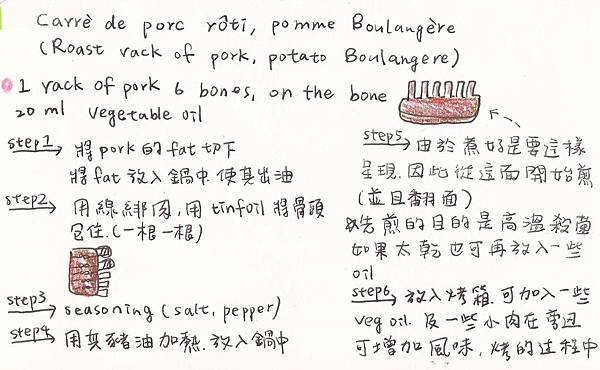 Carrè de porc rôti, pomme Boulangère
(Roast rack of pork, potato Boulangere)
1 rack of pork 6 bones, on the bone
20 ml vegetable oil
step1 將pork的fat切下
將fat放入鍋中使其出油
step2 用線綁肉,用tinfoil將骨頭
包住.(一根一根)
step3 seasoning (salt, pepper)
step4 用其豬油加熱.放入鍋中
step5 由於煮好是要這樣
呈現.因此從這面開始煎
(並且翻面)
先煎的目的是高溫殺菌
如果太乾也可再放入一些
oil
step6 放入烤箱.可加入一些
veg oil. 及一些小肉在旁边
可增加風味,烤的过程中